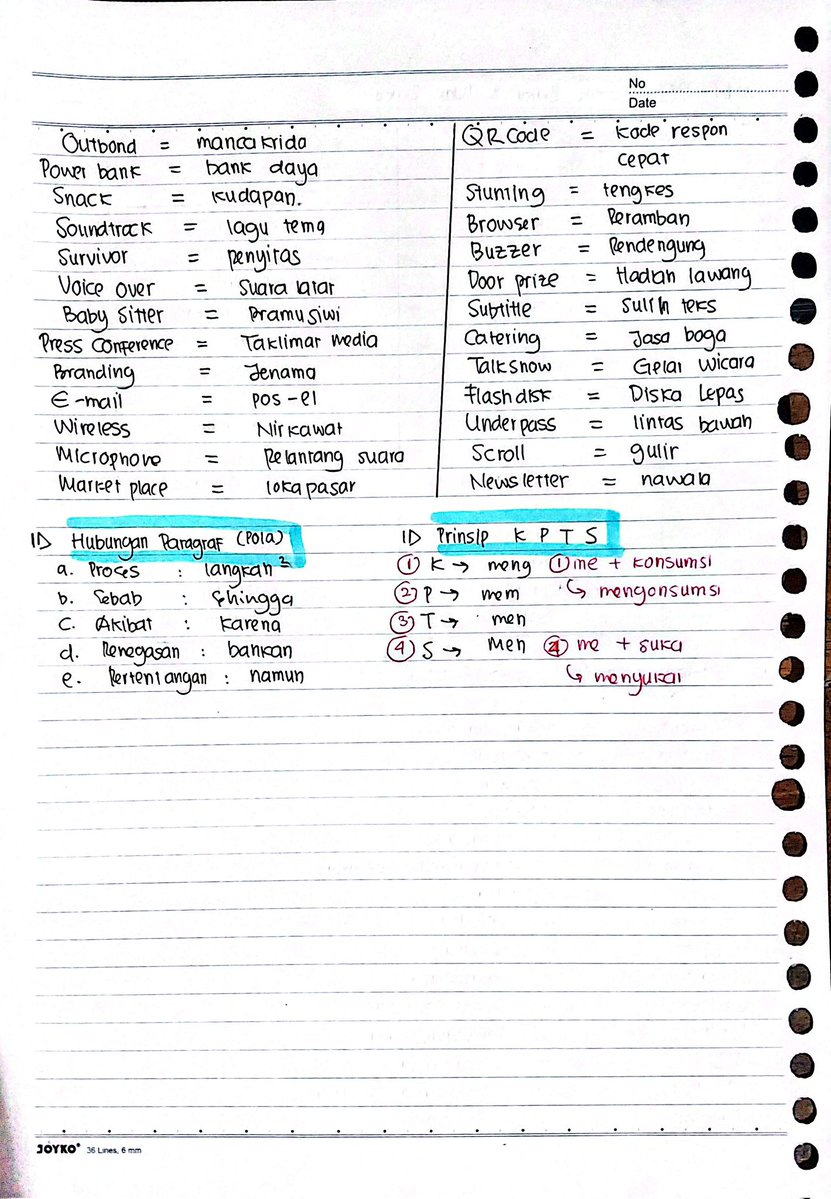 No
Date
Outbond = mancakrida
Power bank = bank daya
Snack = kudapan.
Soundtrack = lagu tema
Survivor = penyitas
Voice over = Suara latar
Baby Sitter = Pramusiwi
Press Conference = Taklimat media
Branding = Jenama
E-mail = pos-el
Wireless = Nirkawat
Microphone = Pelantang suara
Market place = lokapasar
QR Code = kode respon
cepat
Stunting = tengkes
Browser = Peramban
Buzzer = Pendengung
Door prize = Hadiah lawang
Subtitle = Sulih teks
Catering = Jasa boga
Talkshow = Gelar wicara
Flashdisk = Diska Lepas
Underpass = lintas bawah
Scroll = gulir
Newsletter = nawala
Hubungan Paragraf (Pola)
a. Proses : langkah²
b. Sebab : Sehingga
c. Akibat : karena
d. Penegasan : bahkan
e. Pertentangan : namun
Prinsip K P T S
① K → meng ① me + konsumsi
② P → mem ↳ mengonsumsi
③ T → men
④ S → Men ④ me + suka
↳ menyukai
JOYKO 36 Lines, 6 mm